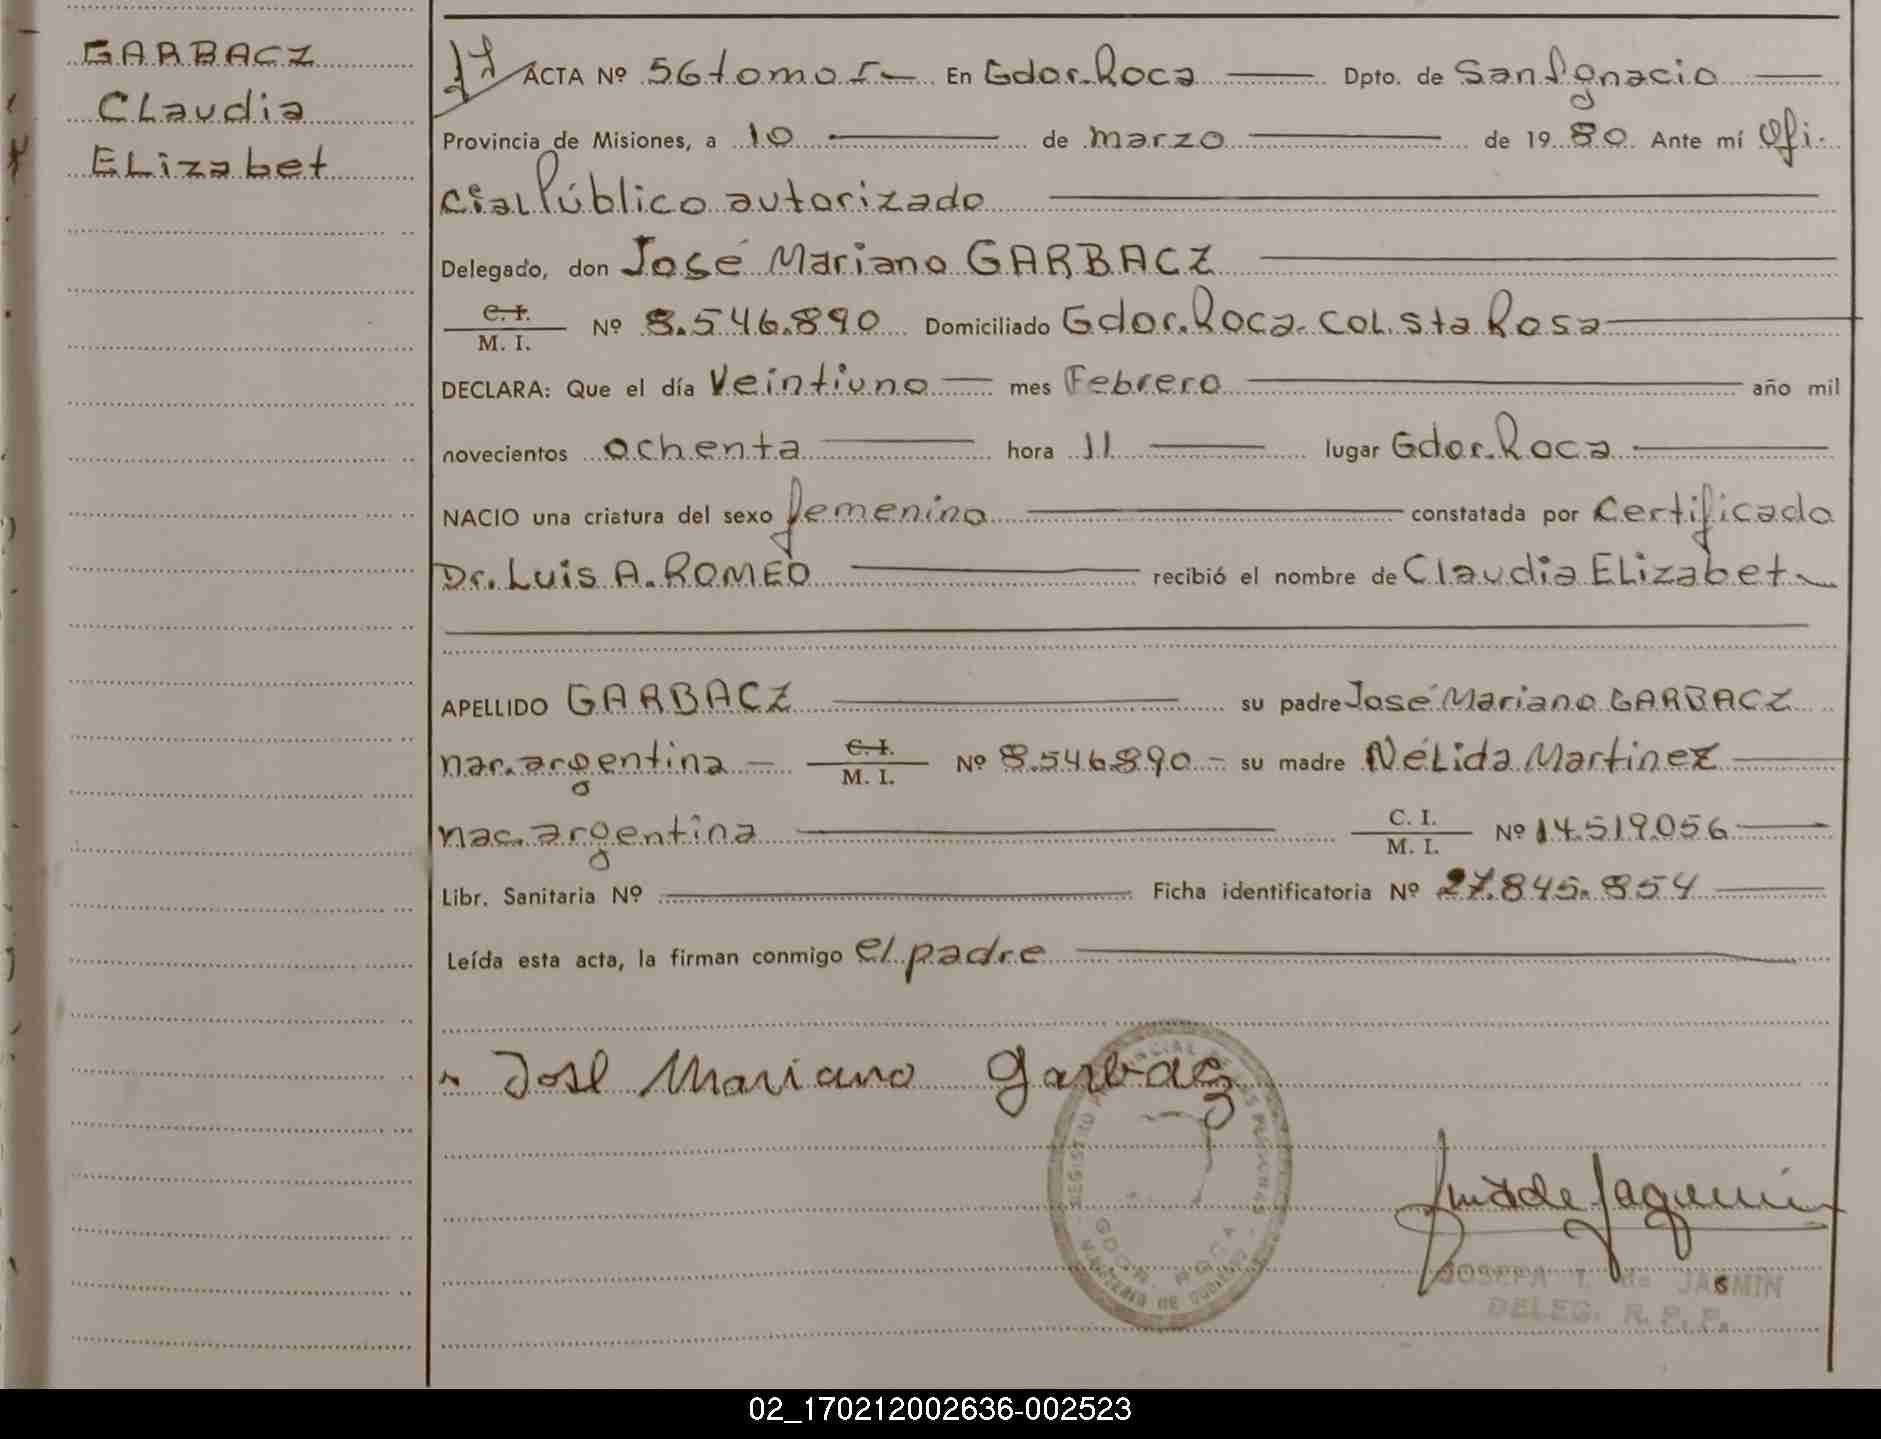 GARBACZ
Claudia
ELizabet
ACTA Nº 56 tomo I En Gdor. Roca Dpto. de San Ignacio
Provincia de Misiones, a 10 de marzo de 1980. Ante mí Ofi-
cial Público autorizado
Delegado, don José Mariano GARBACZ
C. I.
M. I. Nº 8.546.890 Domiciliado Gdor. Roca. CoL. Sta Rosa
DECLARA: Que el día Veintiuno mes Febrero año mil
novecientos ochenta hora 11 lugar Gdor. Roca
NACIO una criatura del sexo femenino constatada por Certificado
Dr. Luis A. ROMEO recibió el nombre de Claudia ELizabet
APELLIDO GARBACZ su padre José Mariano GARBACZ
nac. argentina C. I.
M. I. Nº 8.546.890 su madre NéLida Martinez
nac. argentina C. I.
M. I. Nº 14.519.056
Libr. Sanitaria Nº Ficha identificatoria Nº 27.845.854
Leída esta acta, la firman conmigo el padre
José Mariano Garbacz
REGISTRO PROVINCIAL DE LAS PERSONAS
GDOR. ROCA
MINISTERIO DE GOBIERNO
JOSEFA T. de JASMIN
DELEG. R. P. P.
02_170212002636-002523